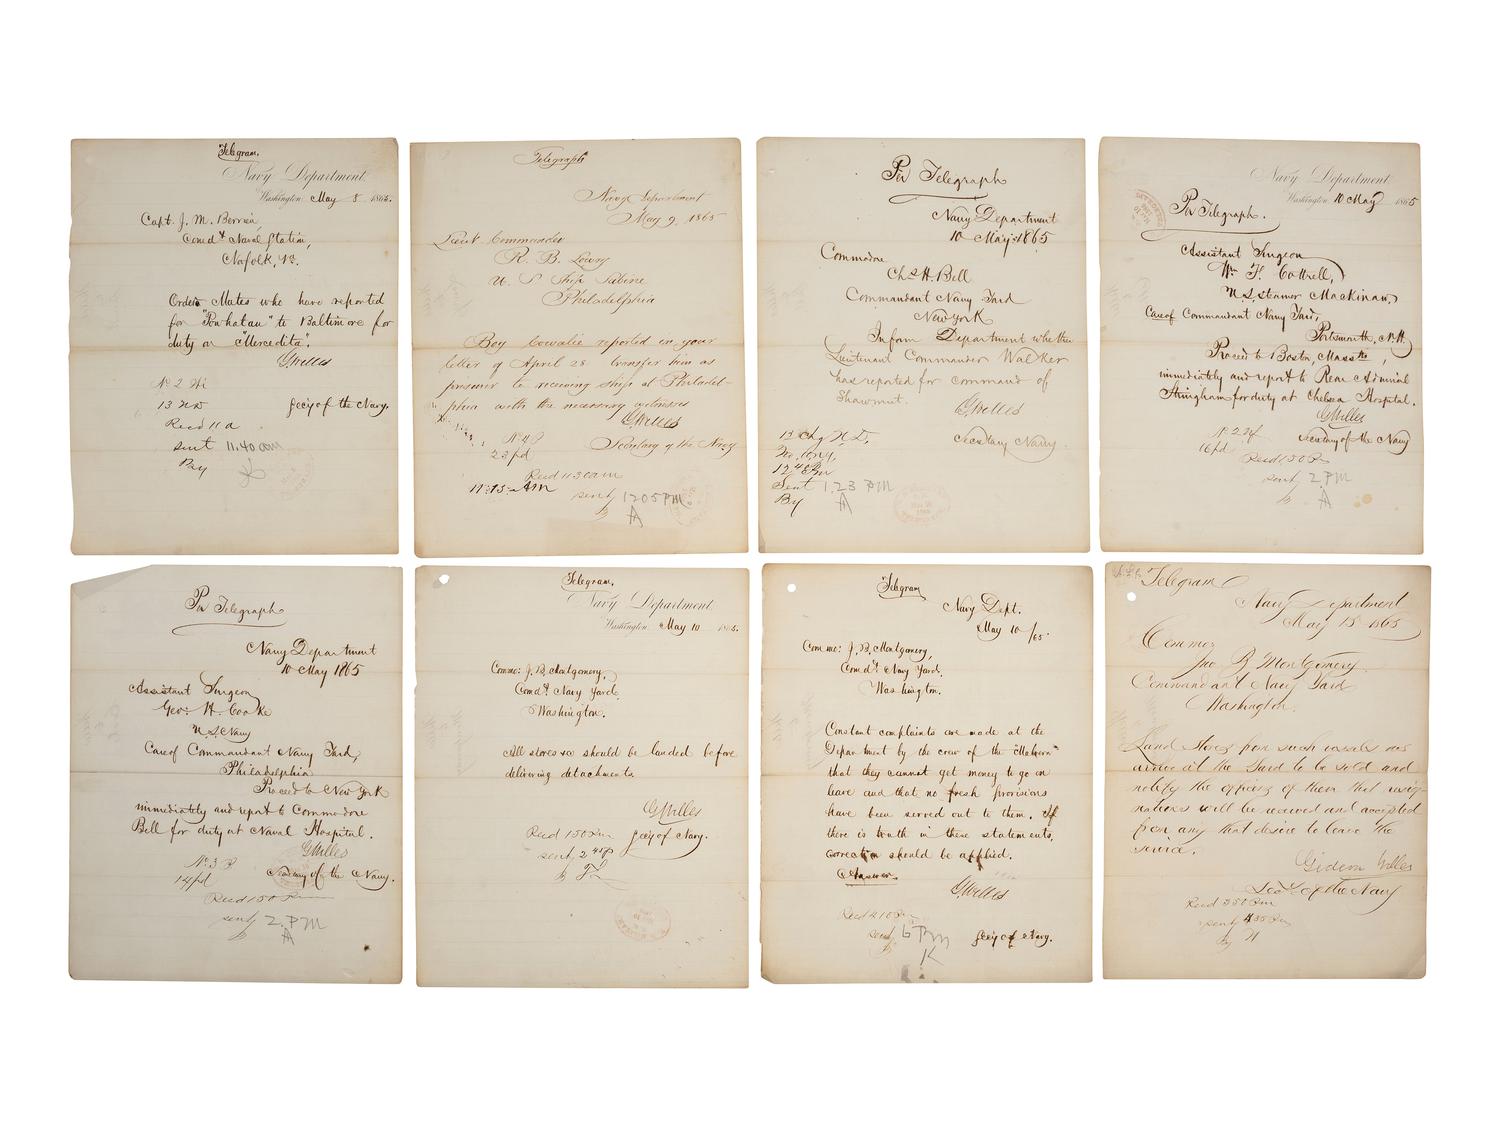 Telegram.
Navy Department
Washington May 8 1865.
Capt. J. M. Berrien,
Comdt Naval Station,
Norfolk, Va.
Order Mates who have reported
for "Powhatan" to Baltimore for
duty on "Mercedita".
G. Welles
Secy of the Navy.
No 2
13
Recd 11 a
sent 11.40 am
Telegraph
Navy Department
May 9. 1865
Lieut. Commander
R. B. Lowry
U. S. Ship Sabine
Philadelphia
Boy reported in your
letter of April 28 transfer him as
prisoner to receiving ship at Philadel-
phia with the necessary witnesses
G. Welles
Secretary of the Navy
23 pd
Recd 11 30 am
11.15 AM
sent 12 05 PM
A
Per Telegraph
Navy Department
10 May 1865
Commodore
Chs H. Bell
Commandant Navy Yard
New York
Inform Department whether
Lieutenant Commander Walker
has reported for command of
Shawmut.
G. Welles
Secretary Navy.
Sent 1.23 PM
By A
Navy Department
Washington 10 May 1865
Per Telegraph.
Assistant Surgeon
Wm F. Cottrell,
U.S. Steamer Mackinaw,
Care of Commandant Navy Yard,
Portsmouth, N.H.
Proceed to Boston, Masstts,
immediately and report to Rear Admiral
Stringham for duty at Chelsea Hospital.
G Welles
Secretary of the Navy
16 pd
Recd 1 50 Pm
sent 2 PM
A
Per Telegraph
Navy Department
10 May 1865
Assistant Surgeon
Geo: H. Cooke
U.S. Navy
Care of Commandant Navy Yard,
Philadelphia
Proceed to New York
immediately and report to Commodore
Bell for duty at Naval Hospital.
G Welles
Secretary of the Navy.
No. 3 P
14 pd
Recd 1 50 Pm
sent 2. PM
A
Telegram.
Navy Department
Washington May 10 1865.
Commo: J. B. Montgomery,
Comdt Navy Yard.
Washington.
All stores &c should be landed before
delivering detachments.
G Welles
Secy of Navy.
Recd 1 50 Pm
sent 2 45 P
Telegram
Navy Dept.
May 10/65.
Commo: J. B. Montgomery,
Comdt Navy Yard.
Washington.
Constant complaints are made at the
Department by the crew of the "Mahern"
that they cannot get money to go on
leave and that no fresh provisions
have been served out to them. If
there is truth in these statements,
correction should be applied.
Answer
G. Welles
Secy of Navy.
Recd 2 10 Pm
sent 6 PM
K
Telegram
Navy Department
May 15 1865
Commo.
Jno. B. Montgomery.
Commandant Navy Yard
Washington.
Land stores from such vessels as
arrive at the Yard to be sold and
notify the officers of them that resig-
nations will be received and accepted
from any that desire to leave the
service.
Gideon Welles
Secy. of the Navy
Recd 3 50 Pm
sent 4 35 Pm
By